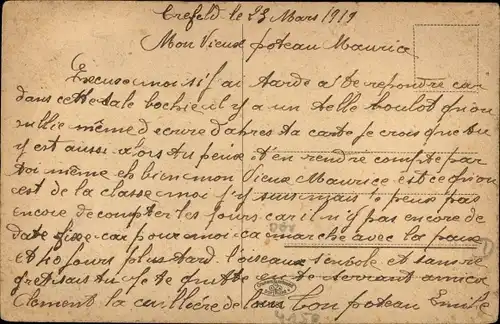 Crefeld le 23 Mars 1919
Mon Vieux poteau Maurice
Excuse moi si j'ai tardé a te repondre car
dans cette sale bochie il y a un telle boulot qu'on
oublie même d'ecrire d'apres ta carte je crois que tu
y est aussi alors tu peux t'en rendre compte par
toi même et bien mon Vieux Maurice est ce qu'on
est de la classe moi j'y suis mais je peux pas
encore de compter les jours car il n'y pas encore de
date fixe car pour moi ca marche avec la paix
et 40 jours plus tard l'oiseau s'envole et sans re
gret sais tu je te quitte en te serrant amica
lement la cuillère de loin ton poteau Emile